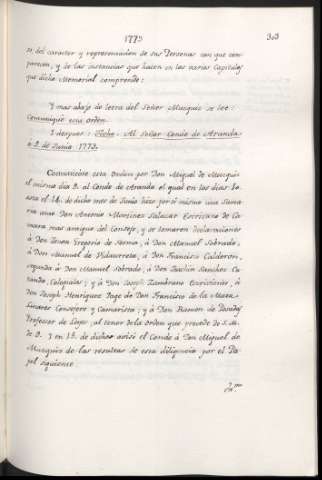 1773
303
si, del caracter y representacion de sus Personas con que com-
parecen, y de las instancias que hacen en los varios Capitulos
que dicho Memorial comprende:
Y mas abajo de letra del Señor Muzquiz se lee:
Comuniquè esta orden.
Y despues: Fecho. Al Señor Conde de Aranda
à 9. de Junio 1773.
Comunicòse esta Orden por Don Miguel de Muzquiz
el mismo dia 9. al Conde de Aranda el qual en los dias
asta el 14. de dicho mes de Junio hizo por sì mismo una Suma-
ria ante Don Antonio Martinez Salazar Escrivano de Ca-
mara mas antiguo del Consejo, y se tomaron declaraciones
à Don Gregorio de Sorna, à Don Manuel Sobrado,
à Don Manuel de Vidaurreta, à Don Francisco Calderon,
segunda à Don Manuel Sobrado, à Don Joachin Sanchez Ca-
Colegiales; y à Don Joseph Zambrano Escriviente, à
Don Joseph Henriquez Page de Don Francisco de la Mata
Linares Consegero y Camarista; y à Don Ramon de
Profesor de Leyes; al tenor de la orden que precede de S. M.
de 9. Y en 15. de dicho avisò el Conde à Don Miguel de
Muzquiz de las resultas de esta diligencia por el Pa-
pel siguiente.